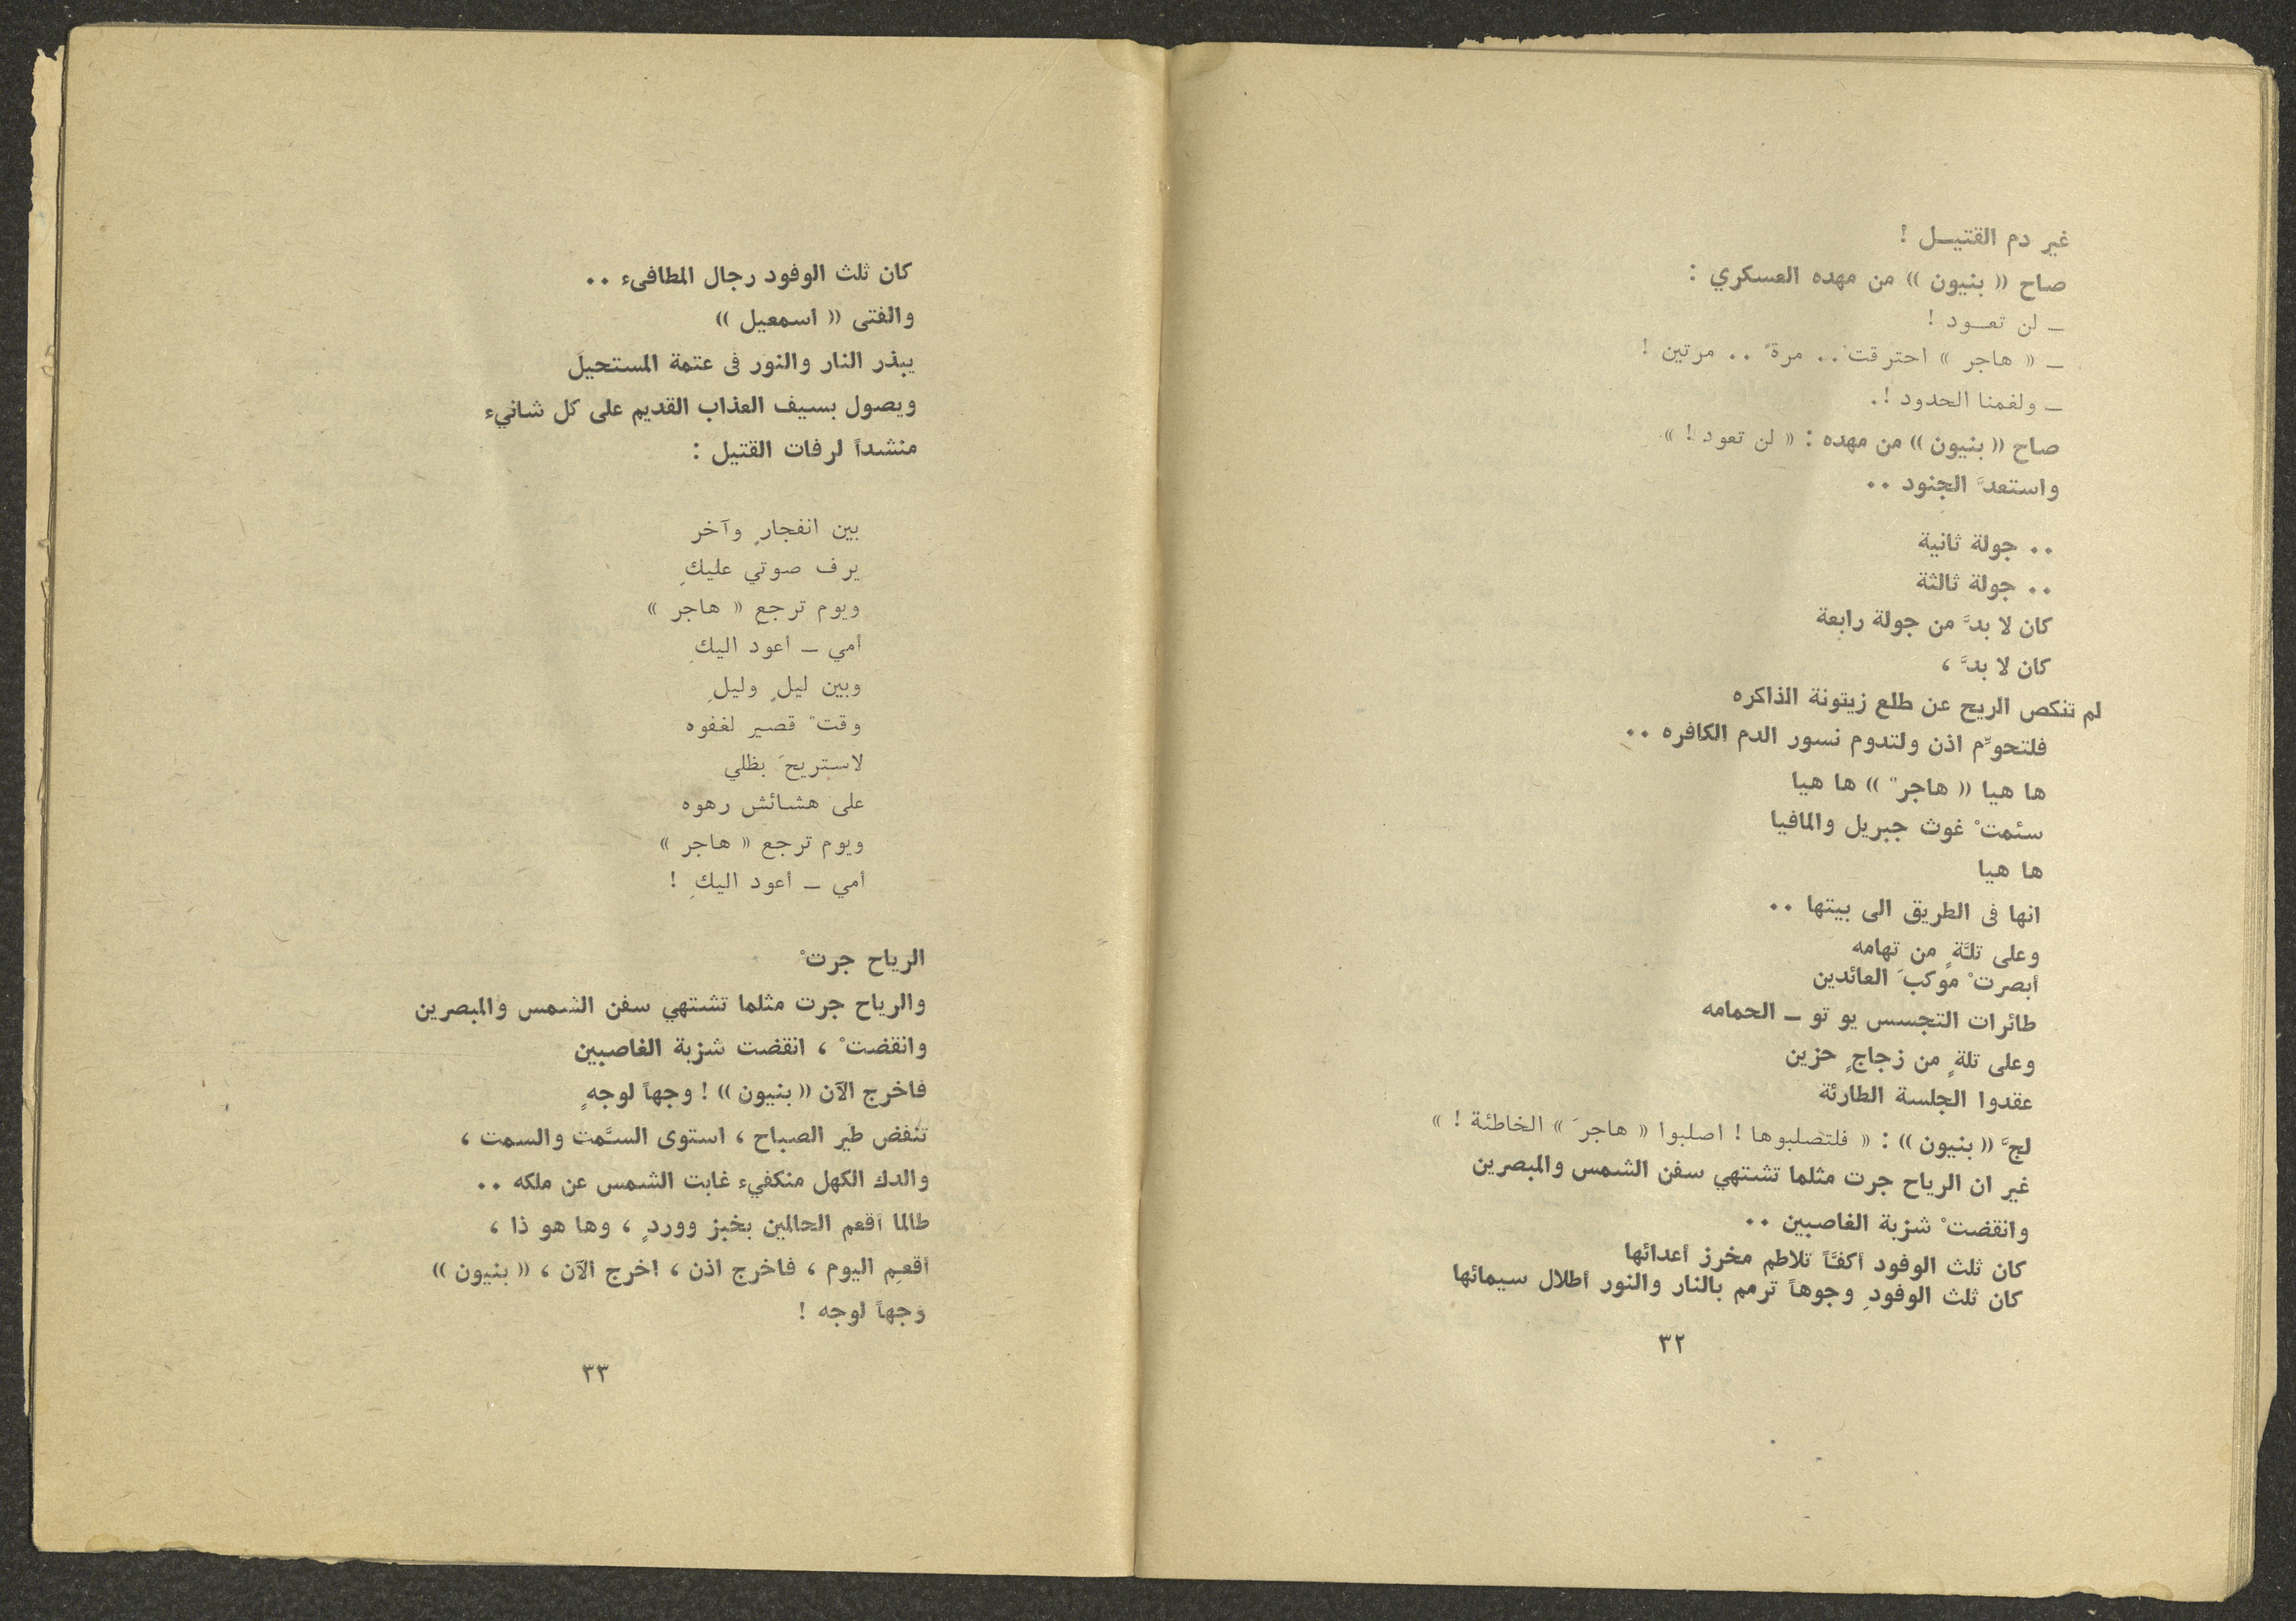 غير دم القتيـــل !
صاح (( بنيون )) من مهده العسكري :
ـ لن تعــود !
ـ « هاجر » احترقتْ .. مرةً .. مرتين !
ـ ولغمنا الحدود !.
صاح (( بنيون )) من مهده : « لن تعود ! »
واستعدَّ الجنود ..
.. جولة ثانية
.. جولة ثالثة
كان لا بدَّ من جولة رابعة
كان لا بدَّ ،
لم تنكص الريح عن طلع زيتونة الذاكره
فلتحوِّم اذن ولتدوم نسور الدم الكافره ..
ها هيا (( هاجرٌ )) ها هيا
سئمتْ غوث جبريل والمافيا
ها هيا
انها في الطريق الى بيتها ..
وعلى تلَّةٍ من تهامه
أبصرتْ موكبَ العائدين
طائرات التجسس يو تو ـ الحمامه
وعلى تلةٍ من زجاجٍ حزين
عقدوا الجلسة الطارئة
لجَّ (( بنيون )) : « فلتصلبوها ! اصلبوا « هاجرَ » الخاطئة ! »
غير ان الرياح جرت مثلما تشتهي سفن الشمس والمبصرين
وانقضتْ شزبة الغاصبين ..
كان ثلث الوفود أكفَّاً تلاطم مخرز أعدائها
كان ثلث الوفودِ وجوهاً ترمم بالنار والنور أطلال سيمائها
٣٢
كان ثلث الوفود رجال المطافىء ..
والفتى (( اسمعيل ))
يبذر النار والنور في عتمة المستحيل
ويصول بسيف العذاب القديم على كل شانيء
منشداً لرفات القتيل :
بين انفجارٍ وآخر
يرف صوتي عليكِ
ويوم ترجع « هاجر »
أمي ـ أعود اليكِ
وبين ليلٍ وليلِ
وقتْ قصير لغفوه
لاستريحَ بظلي
على هشائش رهوه
ويوم ترجع « هاجر »
أمي ـ أعود اليكِ !
الرياح جرتْ
والرياح جرت مثلما تشتهي سفن الشمس والمبصرين
وانقضتْ ، انقضت شزبة الغاصبين
فاخرج الآن (( بنيون )) ! وجهاً لوجهٍ
تنفض طير الصباح ، استوى السَّمت والسمت ،
والدك الكهل منكفيء غابت الشمس عن ملكه ..
طالما أقعم الحالمين بخبز ووردٍ ، وها هو ذا ،
أقعم اليوم ، فاخرج اذن ، اخرج الآن ، (( بنيون ))
وجهاً لوجه !
٣٣